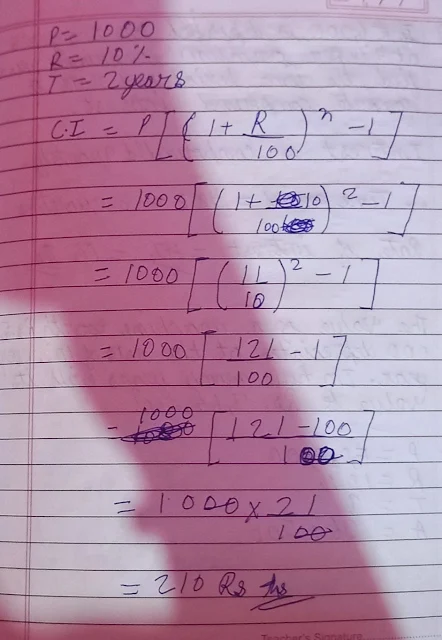 P = 1000
R = 10%
T = 2 years
C.I = P[(1 + R/100)^n - 1]
= 1000[(1 + 10/100)^2 - 1]
= 1000[(11/10)^2 - 1]
= 1000[121/100 - 1]
= 1000[121 - 100/100]
= 1000 x 21/100
= 210 Rs Ans
Teacher's Signature